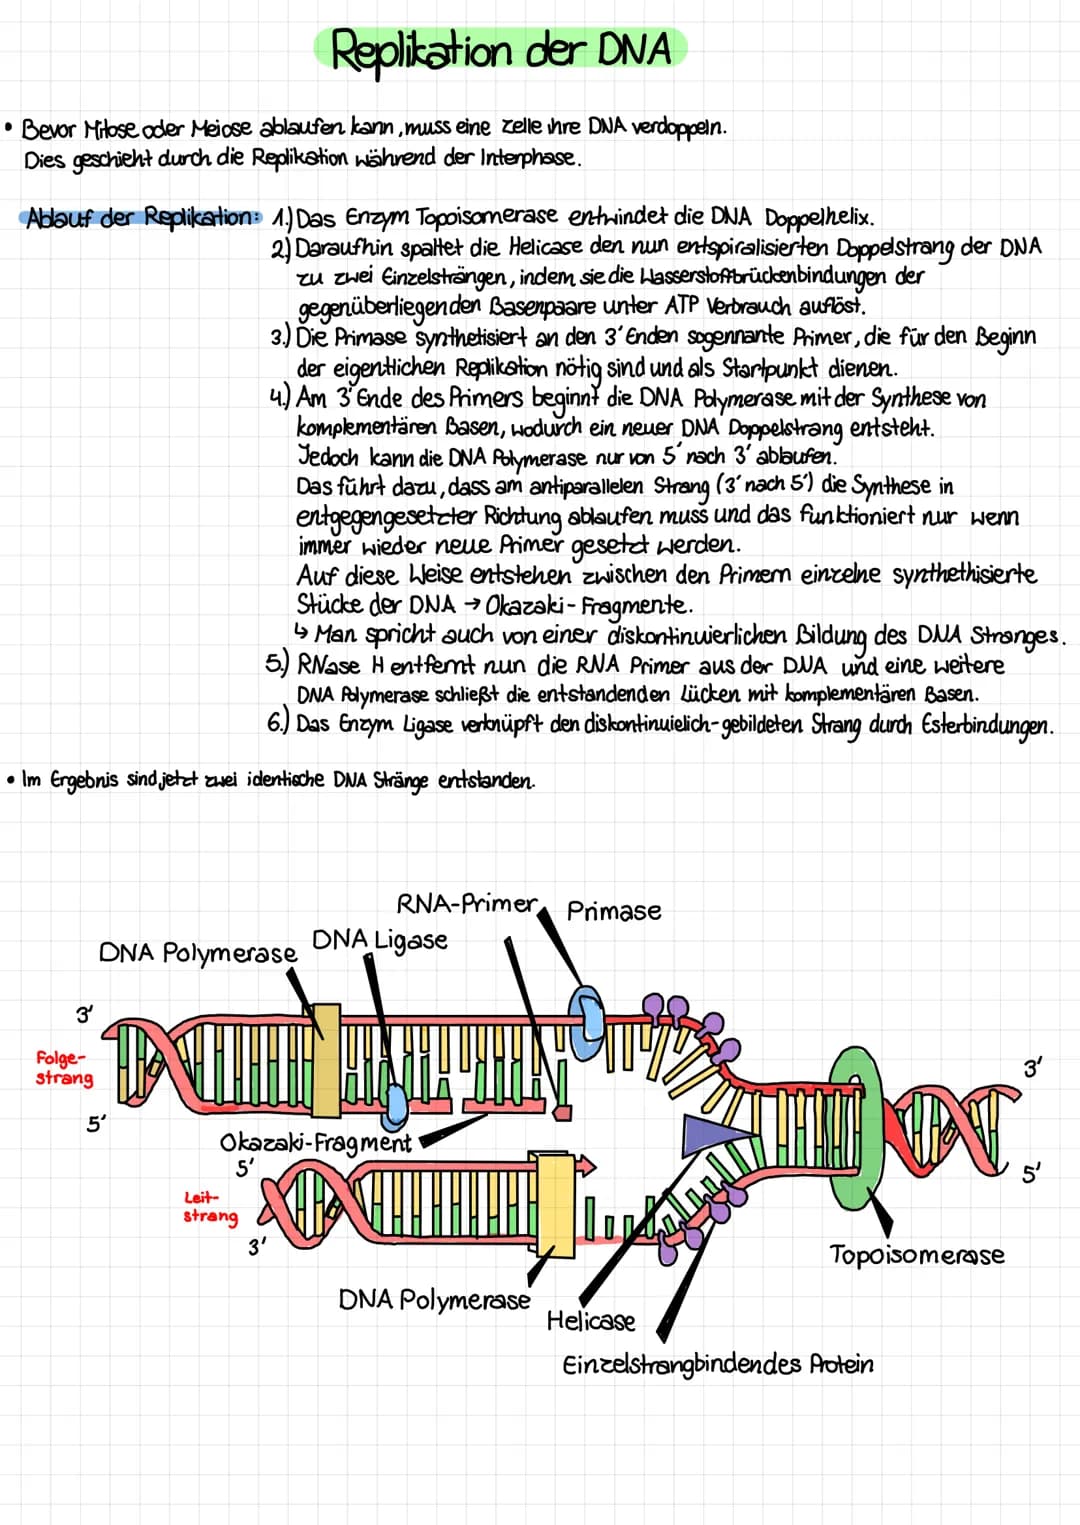 Replikation der DNA
• Bevor Mitose oder Meiose ablaufen kann, muss eine Zelle ihre DNA verdoppeln.
Dies geschieht durch die Replikation während der Interphase.
Ablauf der Replikation: 1.) Das Enzym Topoisomerase entwindet die DNA Doppelhelix.
2.) Daraufhin spaltet die Helicase den nun entspiralisierten Doppelstrang der DNA
zu zwei Einzelsträngen, indem sie die Wasserstoffbrückenbindungen der
gegenüberliegenden Basenpaare unter ATP Verbrauch auflöst.
3.) Die Primase synthetisiert an den 3' Enden sogennante Primer, die für den Beginn
der eigentlichen Replikation nötig sind und als Startpunkt dienen.
4.) Am 3' Ende des Primers beginnt die DNA Polymerase mit der Synthese von
komplementären Basen, wodurch ein neuer DNA Doppelstrang entsteht.
Jedoch kann die DNA Polymerase nur von 5' nach 3' ablaufen.
Das führt dazu, dass am antiparallelen Strang (3' nach 5') die Synthese in
entgegengesetzter Richtung ablaufen muss und das funktioniert nur wenn
immer wieder neue Primer gesetzt werden.
Auf diese Weise entstehen zwischen den Primern einzelne synthethisierte
Stücke der DNA → Okazaki-Fragmente.
↳ Man spricht auch von einer diskontinuierlichen Bildung des DNA Stranges.
5.) RNase H entfernt nun die RNA Primer aus der DNA und eine weitere
DNA Polymerase schließt die entstandenden Lücken mit komplementären Basen.
6.) Das Enzym Ligase verknüpft den diskontinuielich-gebildeten Strang durch Esterbindungen.
• Im Ergebnis sind jetzt zwei identische DNA Stränge entstanden.
RNA-Primer
Primase
DNA Polymerase
DNA Ligase
3'
Folge-
strang
5'
3'
5'
Okazaki-Fragment
5'
Leit-
strang
3'
Topoisomerase
DNA Polymerase
Helicase
Einzelstrangbindendes Protein